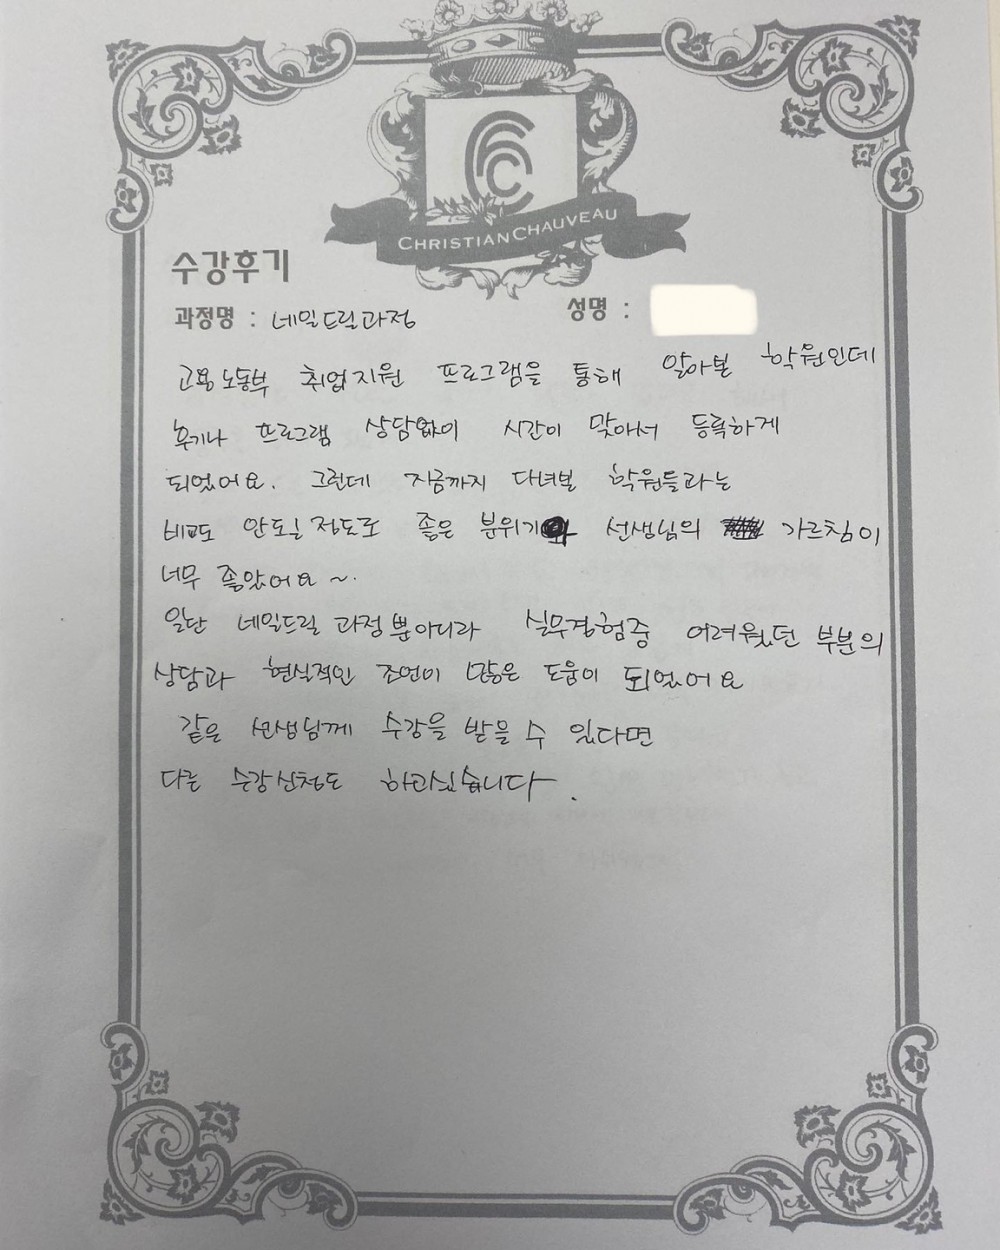 CHRISTIAN CHAUVEAU
수강후기
과정명 : 네일드릴과정
성명 :
고용노동부 취업지원 프로그램을 통해 알아본 학원인데
후기나 프로그램 상담없이 시간이 맞아서 등록하게
되었어요. 그런데 지금까지 다녀본 학원들과는
비교도 안도ㅣ 정도로 좋은 분위기와 선생님의 가르침이
너무 좋았어요 ~.
일단 네일드릴 과정뿐아니라 실무경험중 어려웠던 부분의
상담과 현실적인 조언이 많은 도움이 되었어요
같은 선생님께 수강을 받을 수 있다면
다른 수강신청도 하고싶습니다.